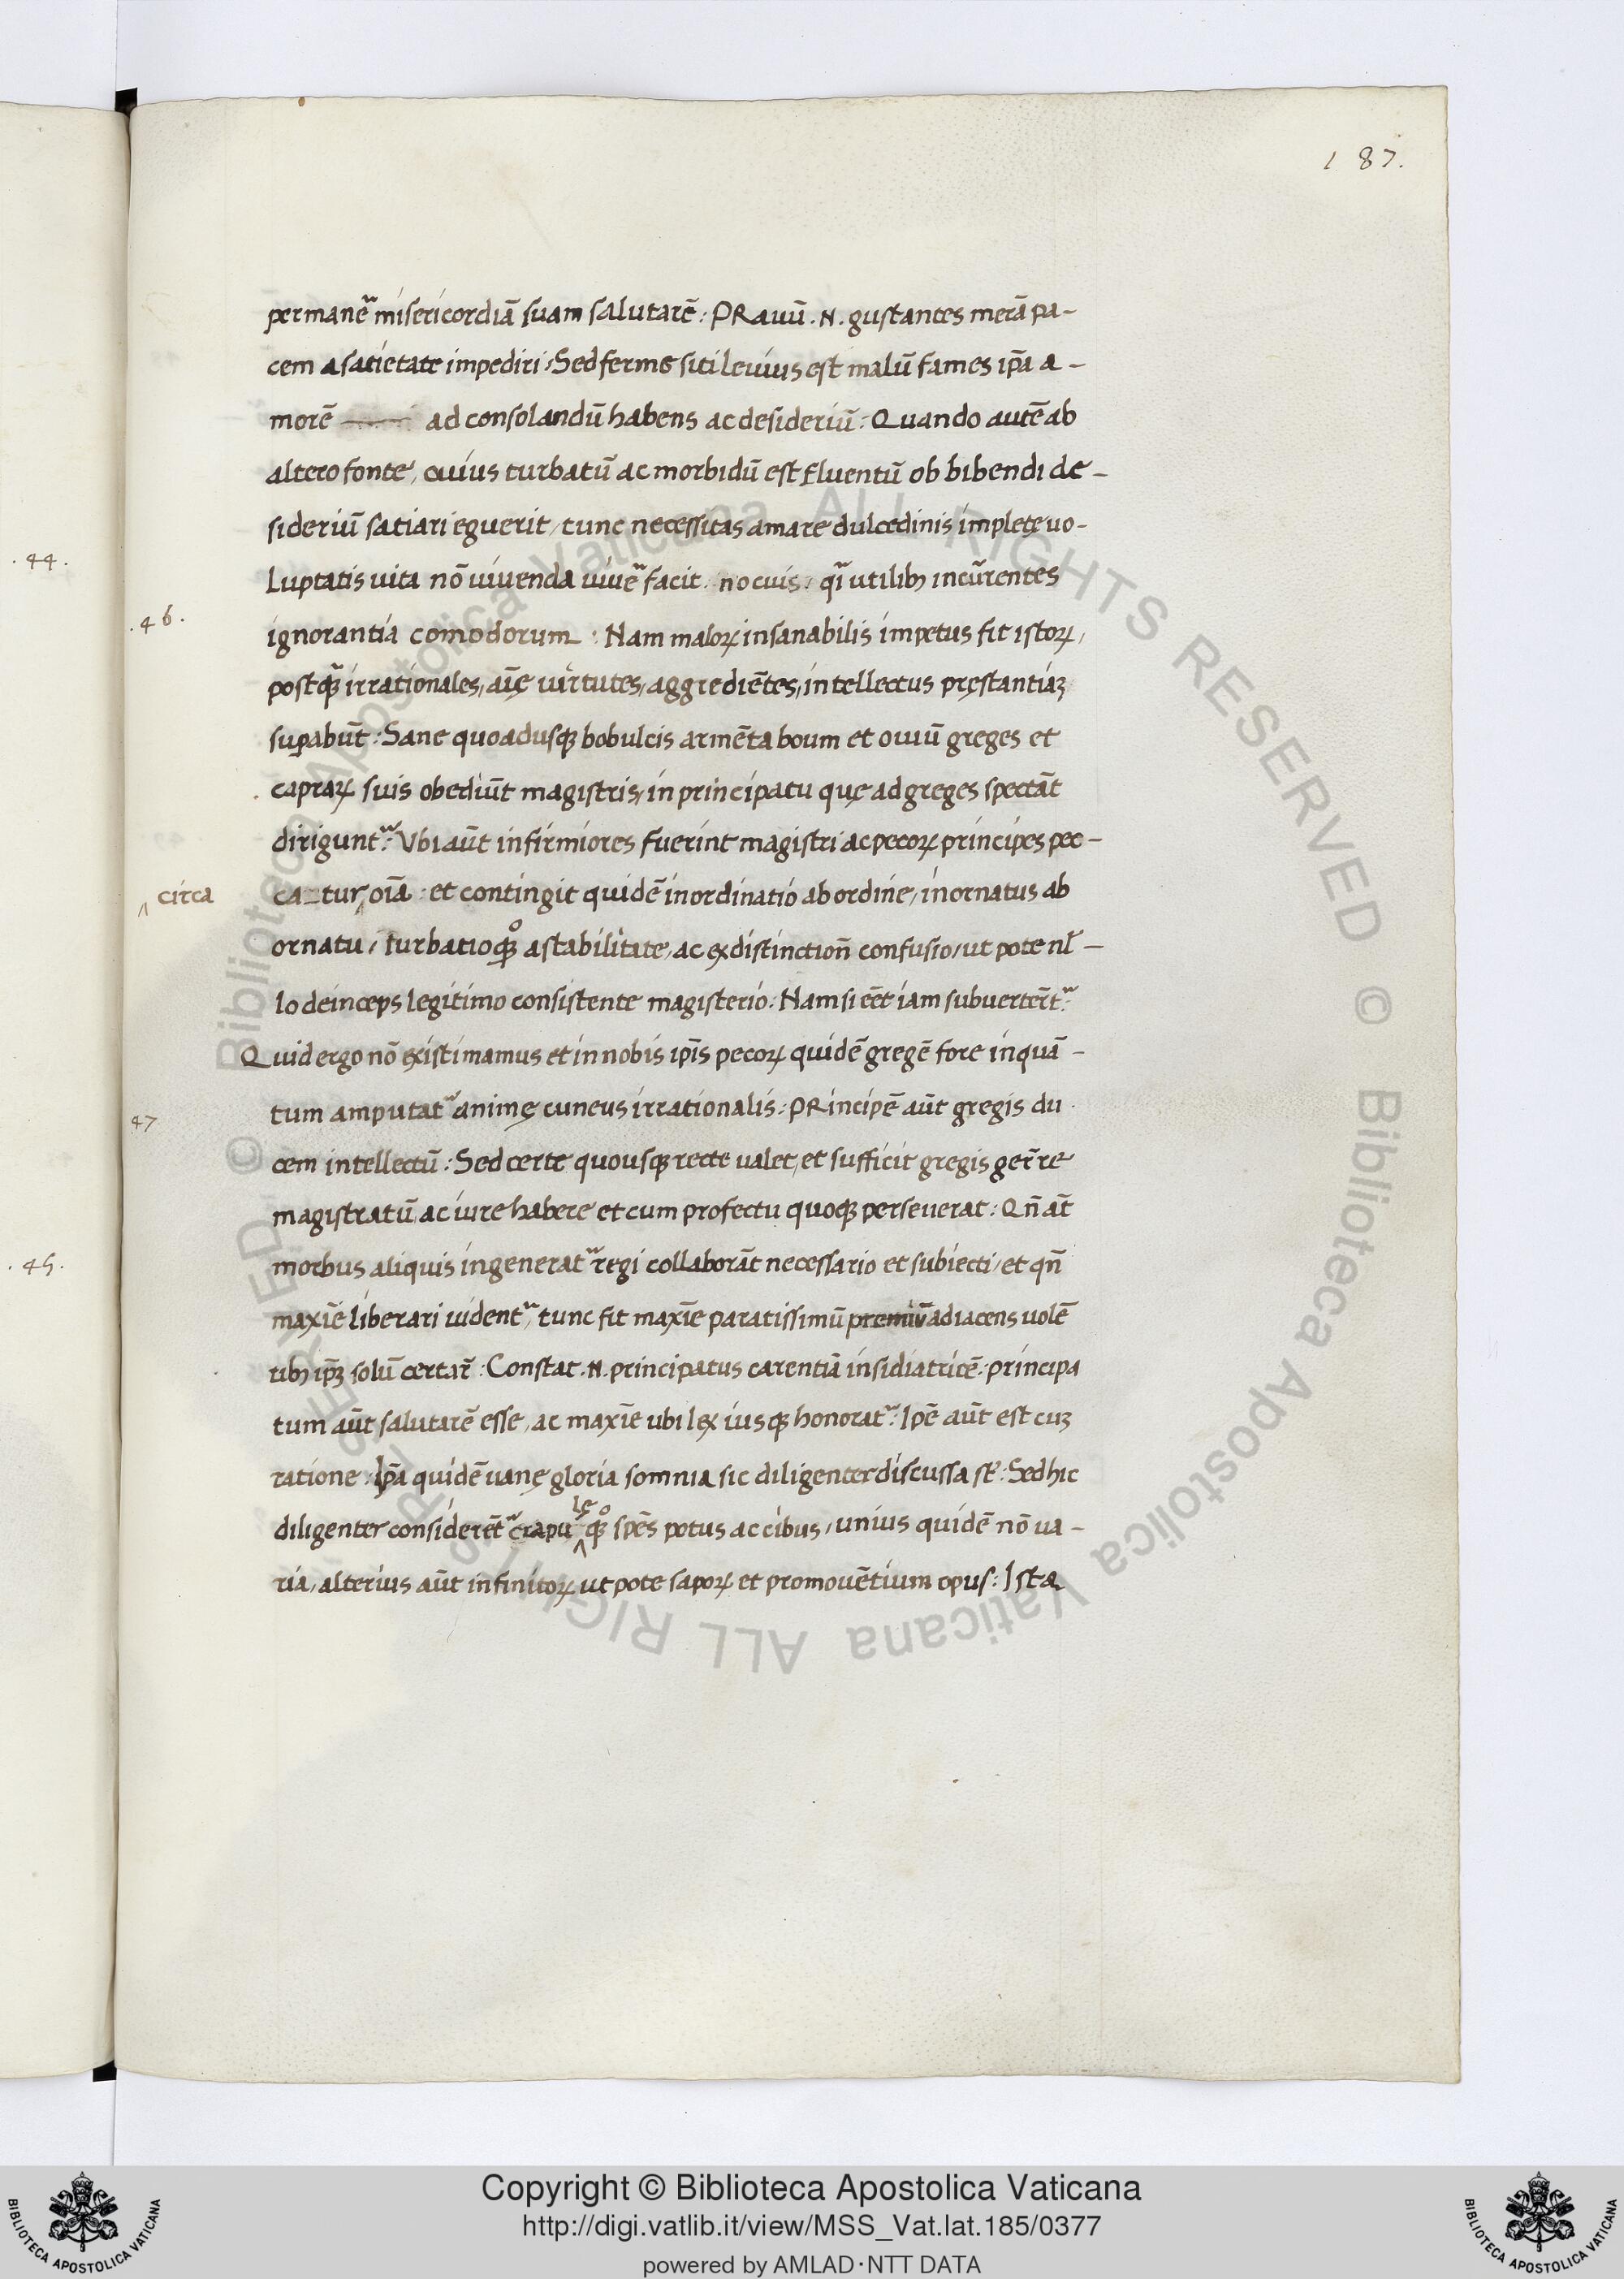 187.
permanēᷓ misericordiā suam salutarē : PRauū . N. gustantes merā pa-
cem a satietate impediri : Sed ferme siti levius est malū fames ip̄a a-
morē ad consolandū habens ac desideriū : Quando autē ab
altero fonte, cuius turbatū ac morbidū est fluentū ob bibendi de-
44. sideriū satiari eguerit, tunc necessitas amare dulcedinis implete uo-
luptatis uita nō viuenda viuēᷓ facit nocuis, qᷓi utilibꝫ incūrentes
.46. ignorantia comodorum : Nam maloꝝ insanabilis impetus fit istoꝝ,
postqᷓ irrationales, aīę uirtutes, aggrediētes, intellectus pręstantiaꝫ
suꝑabūt : Sane quoadusqꝫ bobulcis armēta boum et ouiū greges et
capraꝝ suis obediūt magistris, in principatu quę ad greges spectāt
diriguntᷓ : Vbi aūt infirmiores fuerint magistri ac pecoꝝ principes pec-
circa ca_tur oīa : et contingit quidē inordinatio ab ordine, inornatus ab
ornatu, turbatioqꝫ a stabilitate, ac ex distinctioñ confusio, ut pote nl̄-
lo deinceps legitimo consistente magisterio : Nam si eēt iam subuertēr̄tᷓ :
Quid ergo nō existimamus et in nobis ip̄is pecoꝝ quidē gregē fore inquā-
47 tum amputatᷓ animę cuneus irrationalis : PRincipē aūt gregis du
cem intellectū : Sed certe quousqꝫ recte ualet, et sufficit gregis ger̄re
magistratū, ac iure habere et cum profectu quoqꝫ perseuerat : Qn̄ aūt
.45. morbus aliquis ingeneratᷓ regi collaborāt necessario et subiecti, et qn̄
maxīe liberari uidentᷓ, tunc fit maxīe paratissimū premiū adiacens uolē
tibꝫ ip̄ꝫ solū certar̄ : Constat . N. principatus carentiā insidiatricē : principa
tum aūt salutarē esse, ac maxīe ubi lex iusqꝫ honoratᷓ : Ip̄e aūt est cuꝫ
ratione : Ip̄a quidē uanę gloria somnia sic diligenter discussa st̄ : Sed hic
diligenter considerētᷓ crapulę qꝫ spēs potus ac cibus, unius quidē nō ua-
ria, alterius aūt infinitoꝝ ut pote sapoꝝ et promouētium opus : Ista
Copyright © Biblioteca Apostolica Vaticana
http://digi.vatlib.it/view/MSS_Vat.lat.185/0377
powered by AMLAD·NTT DATA